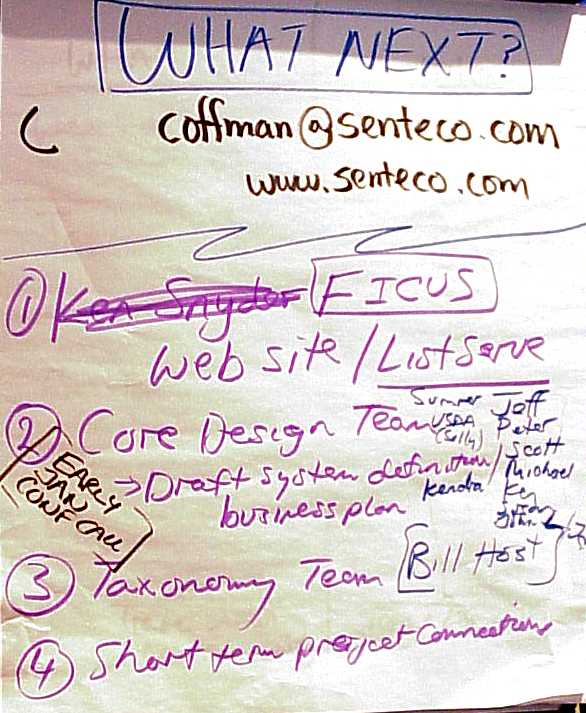 WHAT NEXT?
coffman@senteco.com
www.senteco.com
① Ken Snyder FICUS
web site / ListServe
② Core Design Team
Sumner Jeff
USDA Peter
(Sally)
Scott
→ Draft system definition /
business plan
Michael
Kendra Ken
John
EARLY
JAN
CONF CALL
③ Taxonomy Team [Bill Host
④ Short term project connections